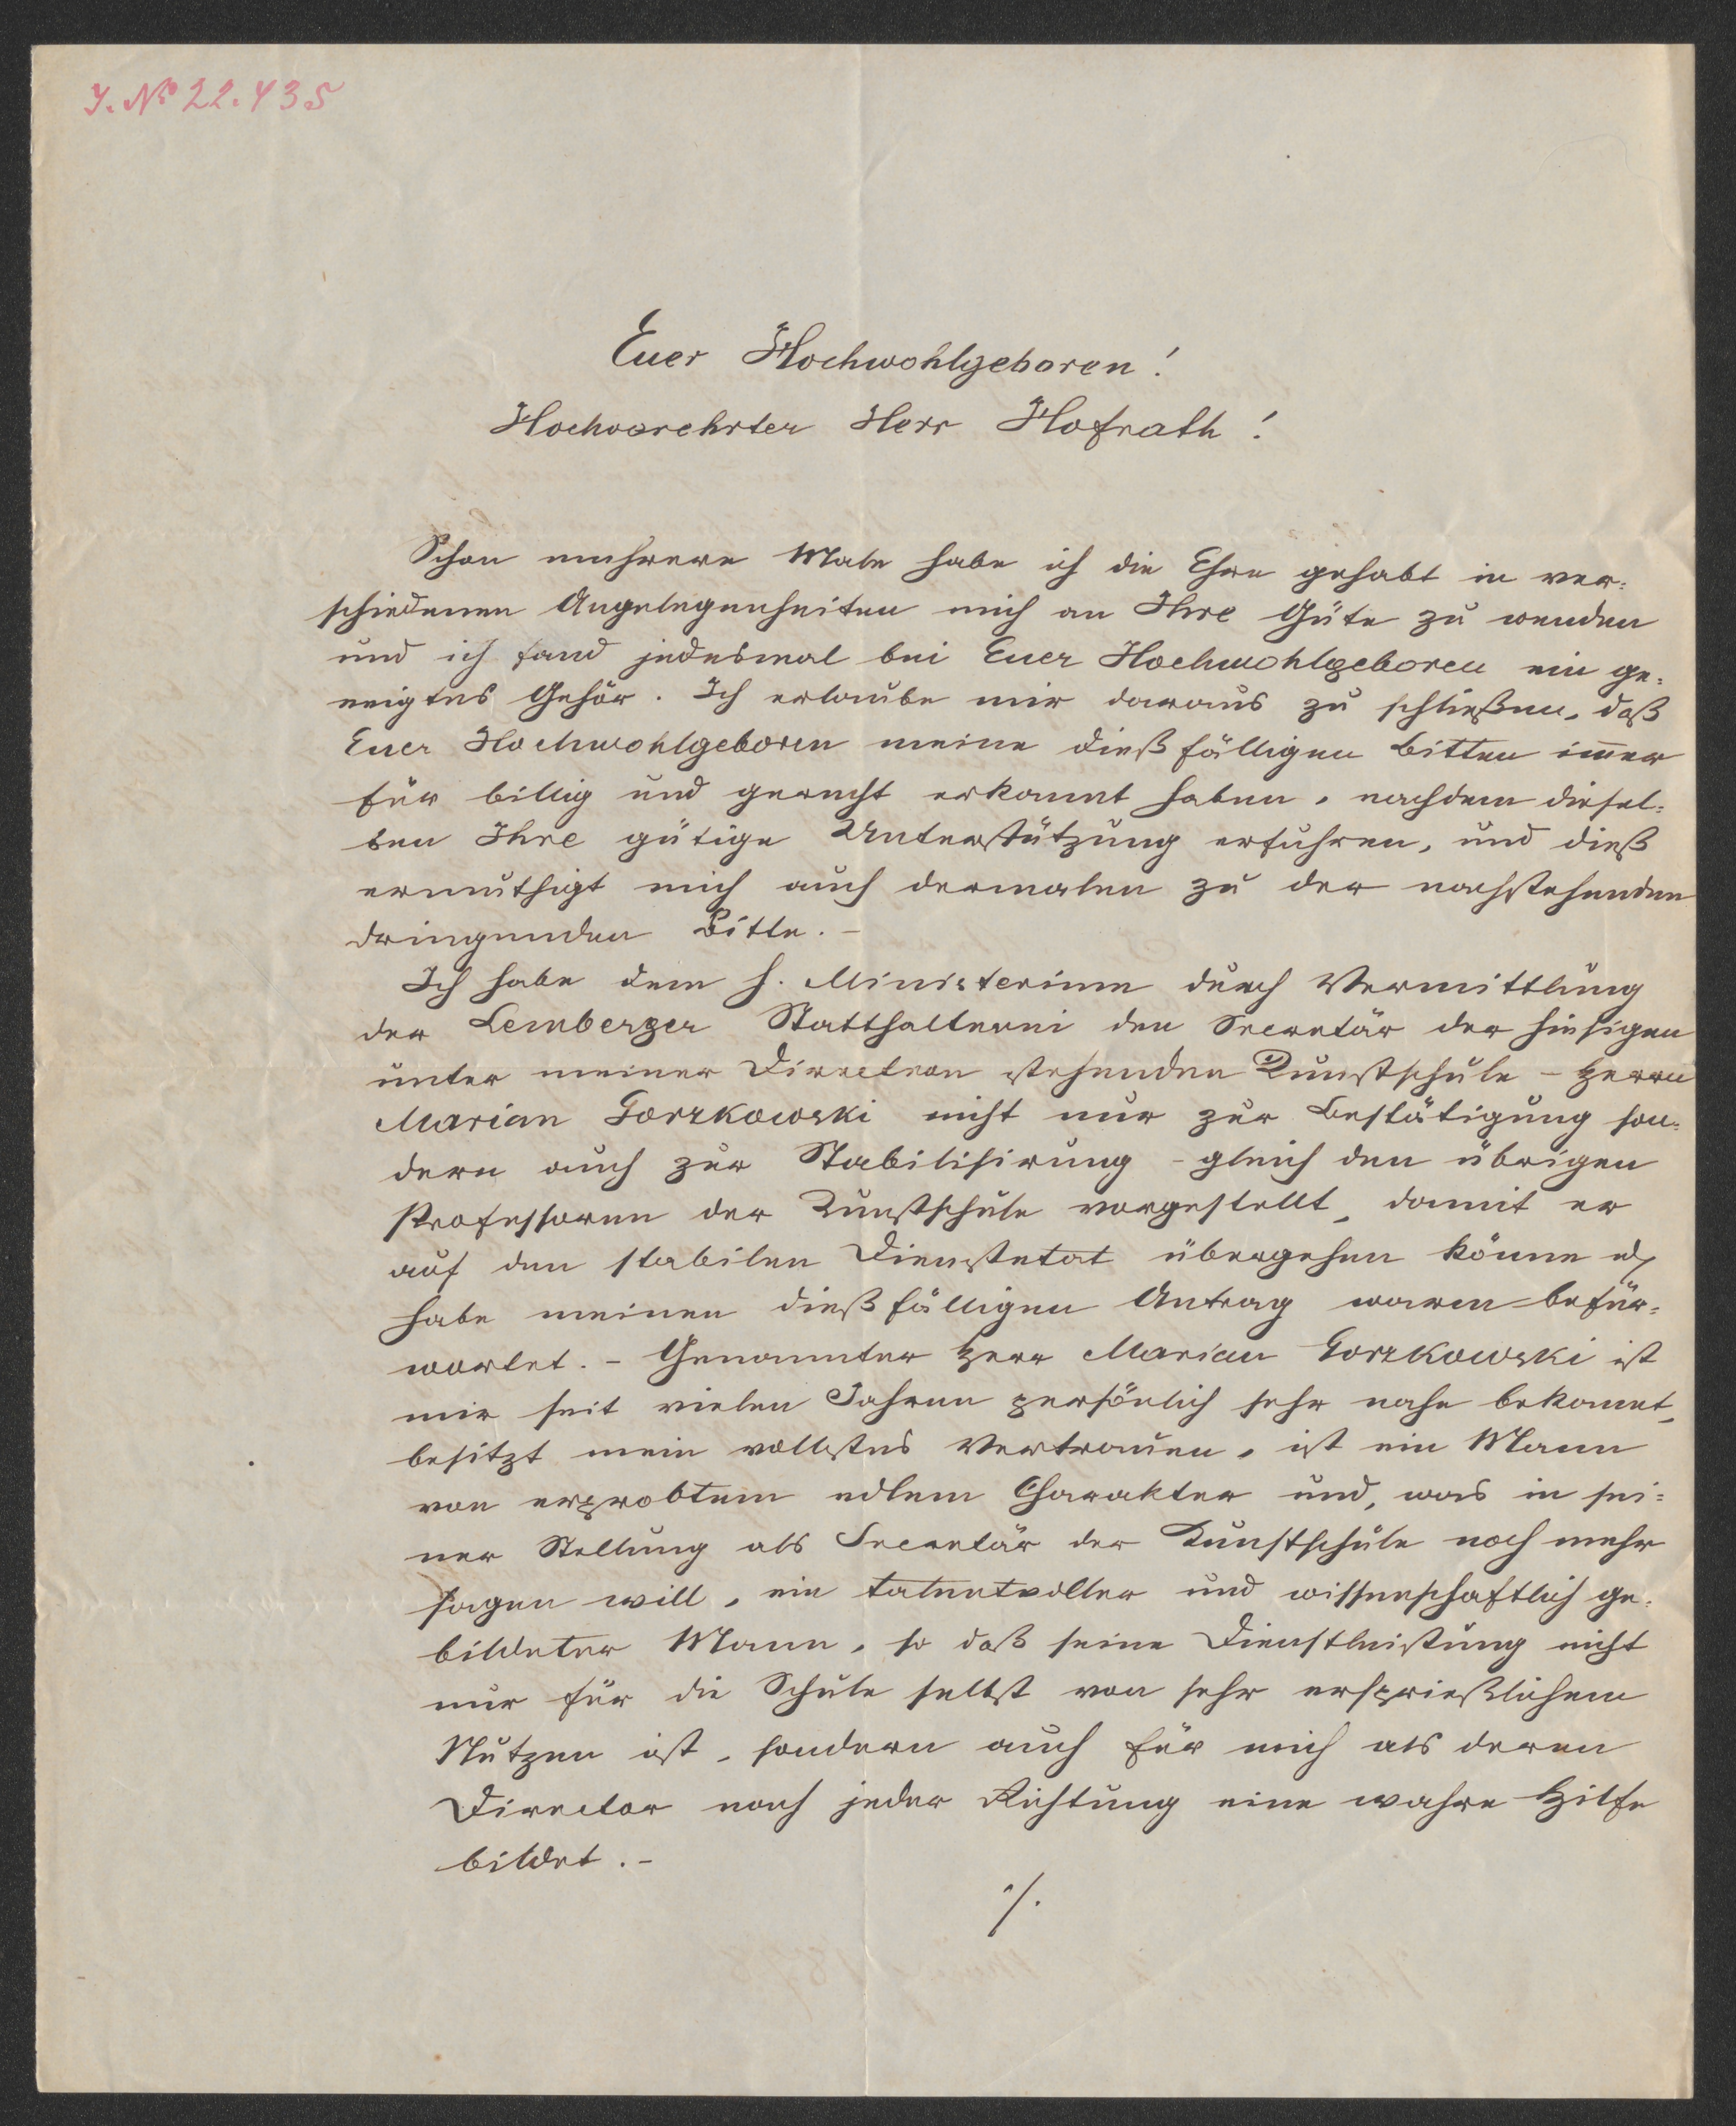 J. No 22.435
Euer Hochwohlgeboren!
Hochverehrter Herr Hofrath!
Schon mehrere Male habe ich die Ehre gehabt in ver-
schiedenen Angelegenheiten mich an Ihre Güte zu wenden
und ich fand jedesmal bei Euer Hochwohlgeboren ein ge-
neigtes Gehör. Ich erlaube mir daraus zu schließen, daß
Euer Hochwohlgeboren meine dießfälligen Bitten im̅er
für billig und gerecht erkannt haben, nachdem diesel-
ben Ihre gütige Unterstützung erfuhren, und dieß
ermuthigt mich auch dermalen zu der nachstehenden
dringenden Bitte. –
Ich habe dem h. Ministerium durch Vermittlung
der Lemberger Statthalterei den Secretär der hiesigen
unter meiner Direction stehenden Kunstschule – Herrn
Marian Gorzkowski nicht nur zur Bestätigung son-
dern auch zur Stabilisirung – gleich den übrigen
Professoren der Kunstschule vorgestellt, damit er
auf den stabilen Dienstetat übergehen könne u.
habe meinen dießfälligen Antrag warm befür-
wortet. – Genannter Herr Marian Gorzkowski ist
mir seit vielen Jahren persönlich sehr nahe bekannt,
besitzt mein vollstes Vertrauen, ist ein Mann
von erprobtem edlem Charakter und, was in sei-
ner Stellung als Secretär der Kunstschule noch mehr
sagen will, ein talentvoller und wissenschaftlich ge-
bildeter Mann, so daß seine Dienstleistung nicht
nur für die Schule selbst von sehr ersprießlichem
Nutzen ist, sondern auch für mich als deren
Director nach jeder Richtung eine wahre Hilfe
bildet. –
./.